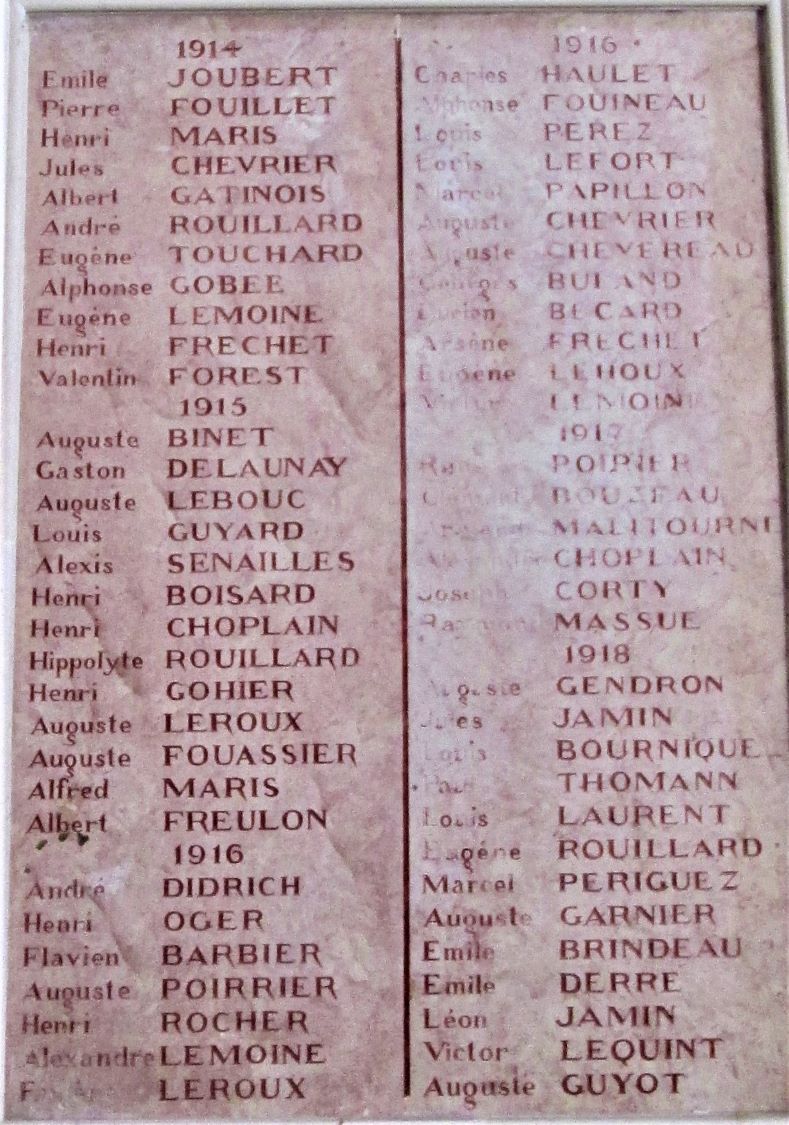 1914
Emile JOUBERT
Pierre FOUILLET
Henri MARIS
Jules CHEVRIER
Albert GATINOIS
André ROUILLARD
Eugène TOUCHARD
Alphonse GOBEE
Eugène LEMOINE
Henri FRECHET
Valentin FOREST
1915
Auguste BINET
Gaston DELAUNAY
Auguste LEBOUC
Louis GUYARD
Alexis SENAILLES
Henri BOISARD
Henri CHOPLAIN
Hippolyte ROUILLARD
Henri GOHIER
Auguste LEROUX
Auguste FOUASSIER
Alfred MARIS
Albert FREULON
1916
André DIDRICH
Henri OGER
Flavien BARBIER
Auguste POIRRIER
Henri ROCHER
Alexandre LEMOINE
LEROUX
1916
Charles HAULET
Alphonse FOUINEAU
Louis PEREZ
Louis LEFORT
Marcel PAPILLON
Auguste CHEVRIER
Auguste CHEVEREAU
Georges BULAND
Lucien BECARD
Arsène FRECHET
Eugène LEHOUX
Victor LEMOINE
1917
POIRIER
Clément BOUZEAU
MALITOURNE
Alexandre CHOPLAIN
Joseph CORTY
Raymond MASSUE
1918
Auguste GENDRON
Jules JAMIN
Louis BOURNIQUE
Paul THOMANN
Louis LAURENT
Eugène ROUILLARD
Marcel PERIGUEZ
Auguste GARNIER
Emile BRINDEAU
Emile DERRE
Léon JAMIN
Victor LEQUINT
Auguste GUYOT